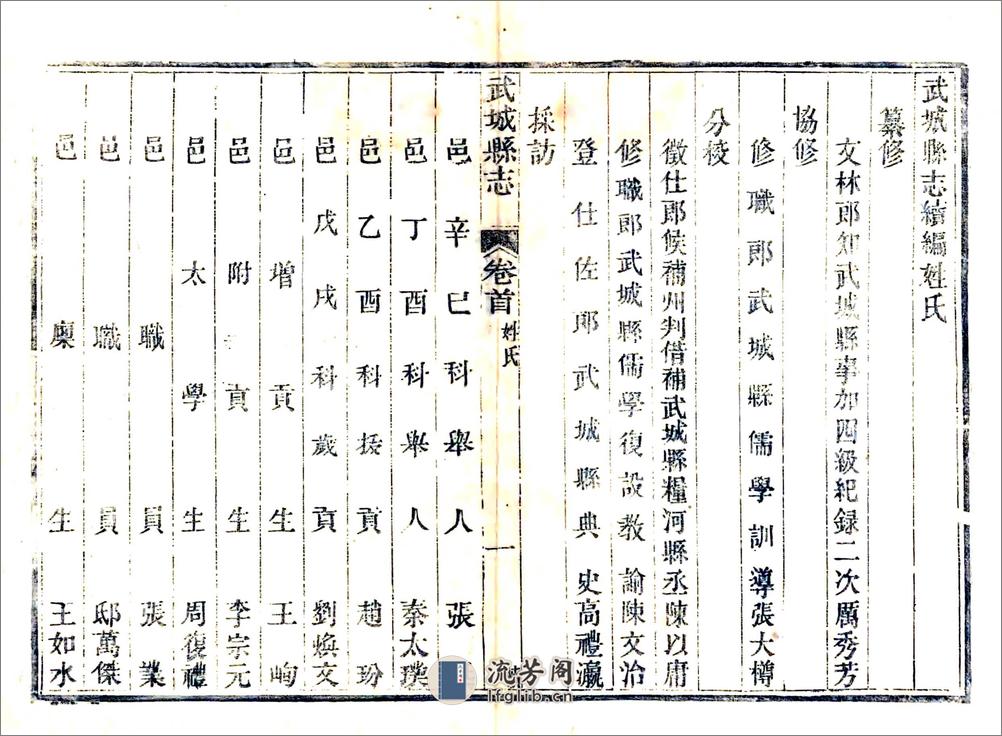 武城縣志續編姓氏
纂修
文林郎知武城縣事加四級紀録二次厲秀芳
協修
修職郎武城縣儒學訓導張大樽
分校
徵仕郎候補州判借補武城縣糧河縣丞陳以庸
修職郎武城縣儒學復設教諭陳文治
登仕佐郎武城縣典史高禮瀛
採訪
武城縣志 卷首 姓氏 一
邑辛巳科舉人張
邑丁酉科舉人秦太璞
邑乙酉科拔貢趙玢
邑戊戌科歲貢劉煥文
邑增貢生王峋
邑附貢生李宗元
邑太學生周復禮
邑職員張業
邑職員邸萬傑
邑廩生王如水
流芳阁
lfglib.cn